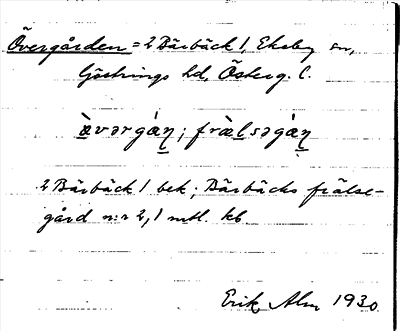 Övergården = 2 Bärbäck 1, Ekeby sn,
Göstrings hd, Österg. l.
ò̤vərgán̠; fràl̠səgán̠
2 Bärbäck 1 bek; Bärbäcks frälse-
gård n:r 2, 1 mtl. kb.
Erik Alm 1930